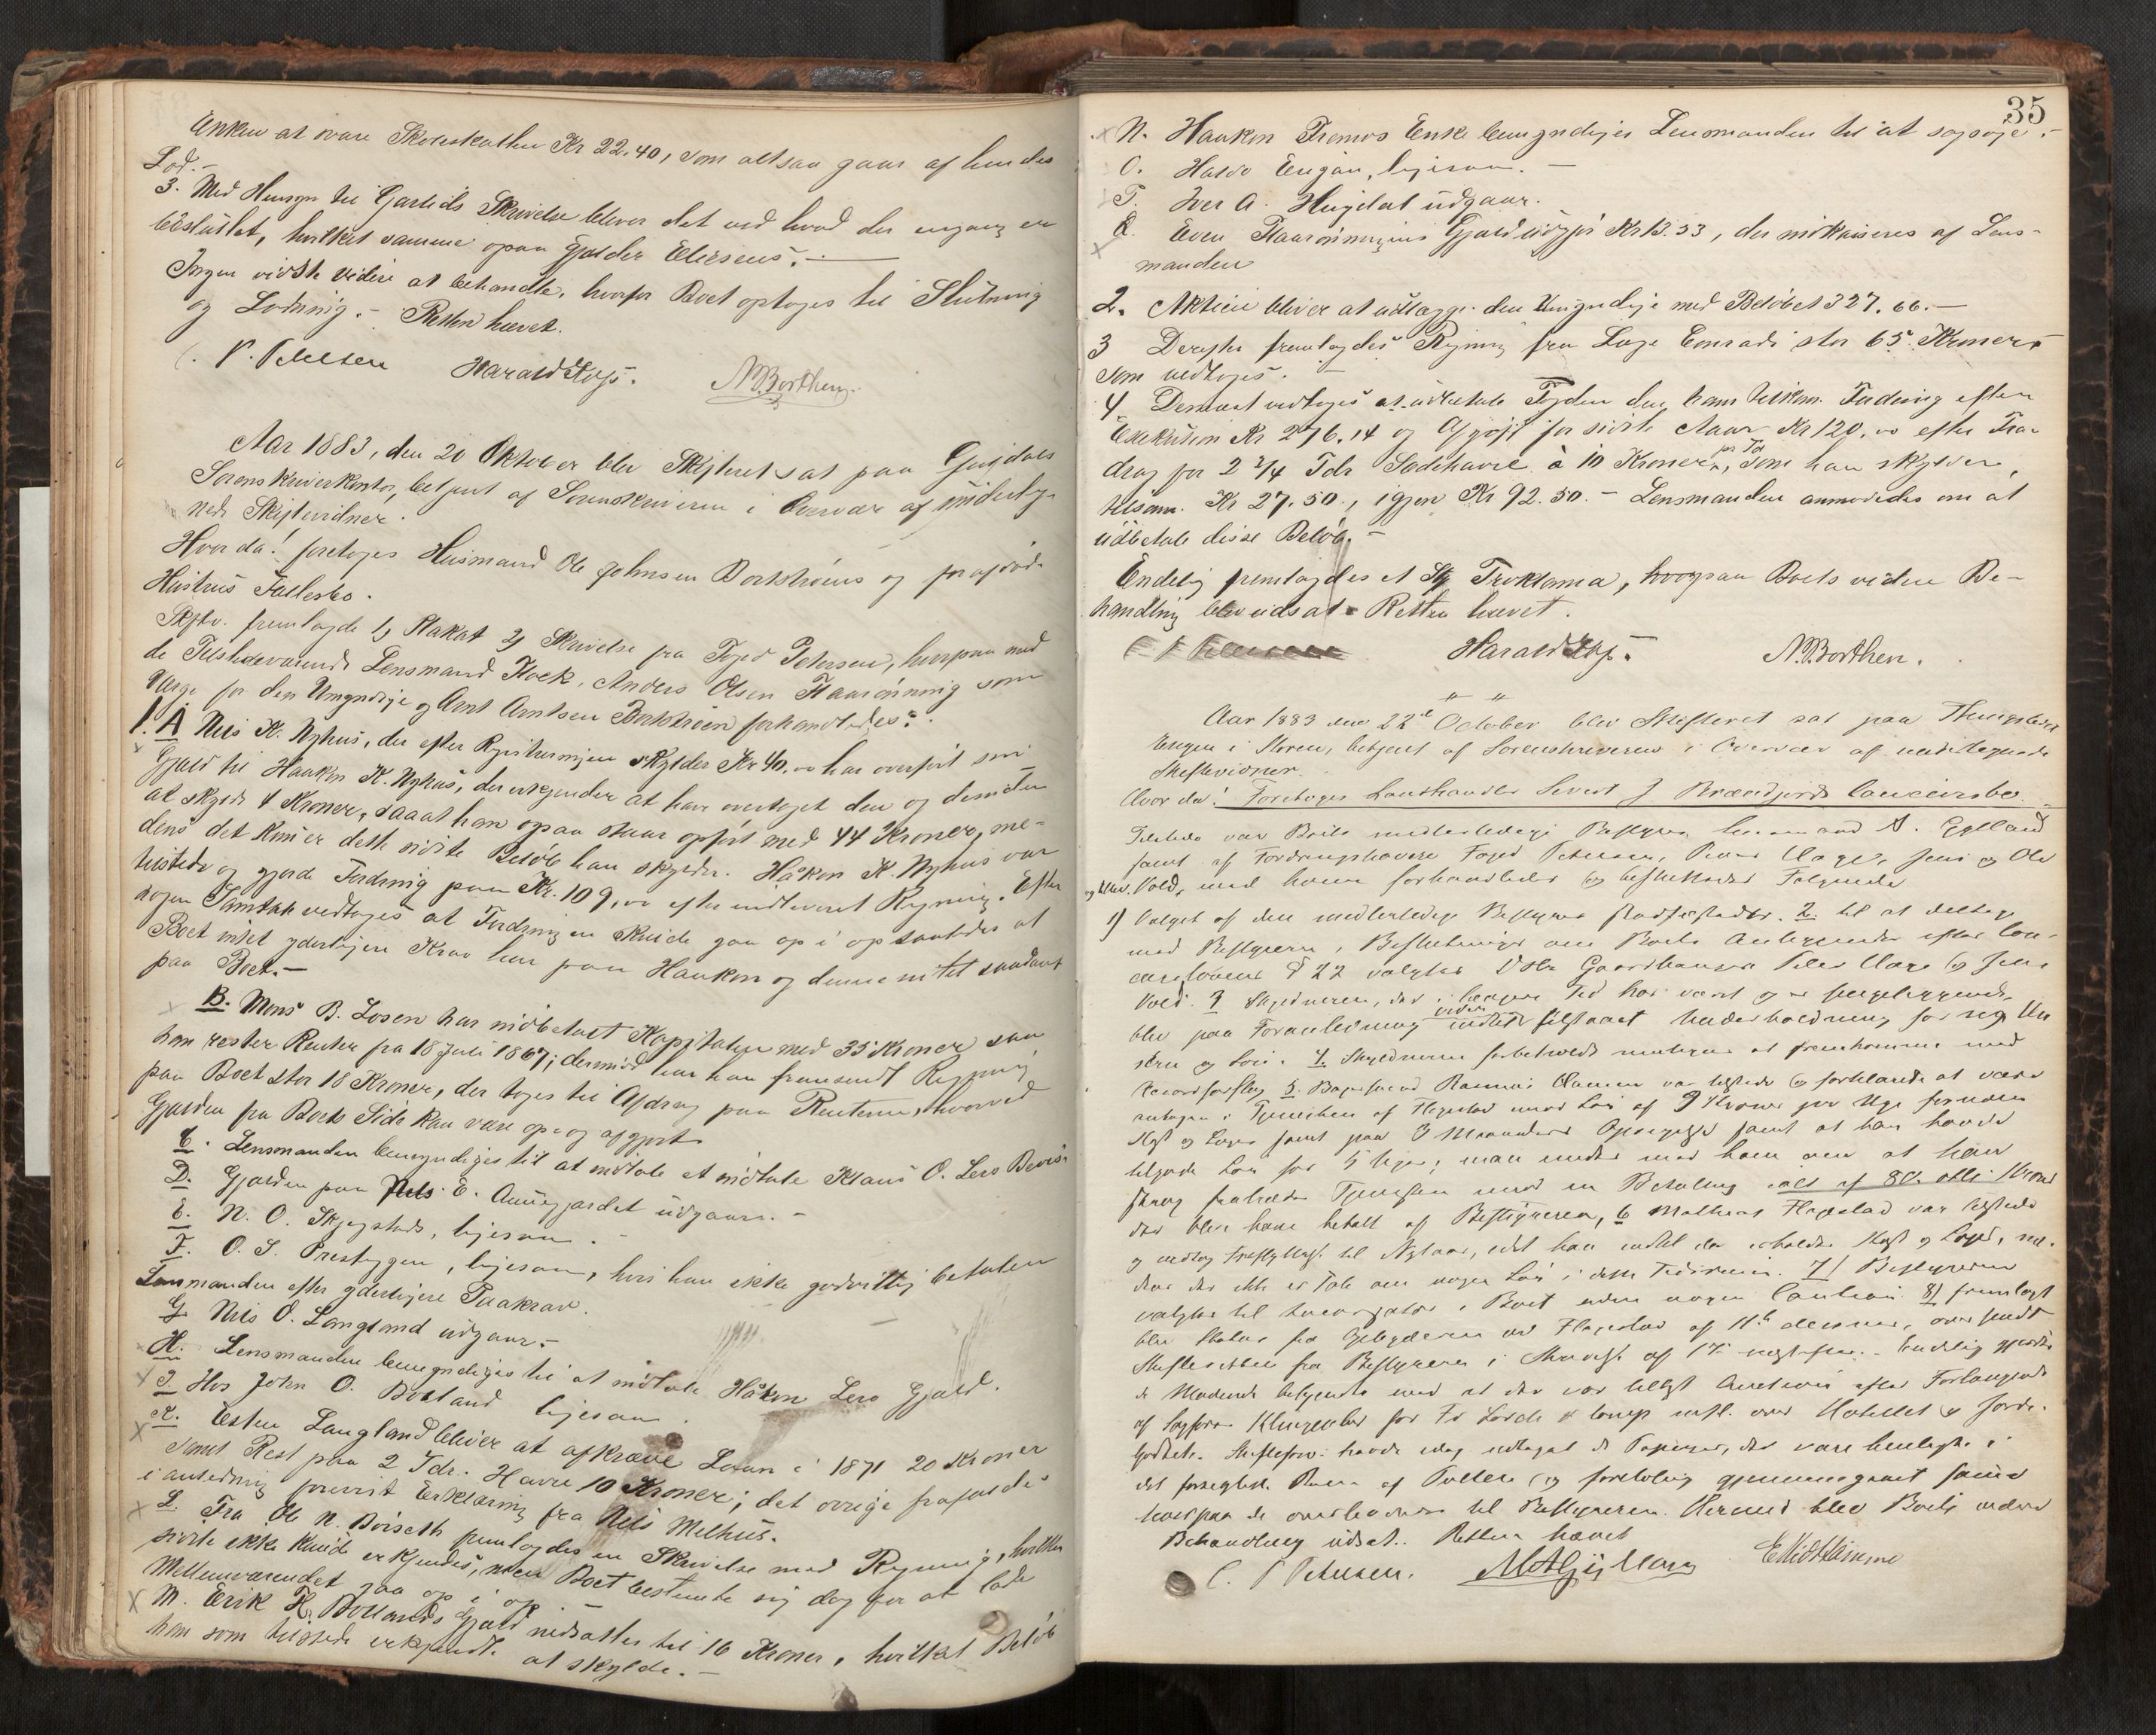 Enken at svare Skoleskatten Kr 22.40, som altsaa gaar af hendes
Lod.-
3. Med Hensyn til Garlids Skrivelse bliver det ved hvad der engang er
besluttet, hvilket samme ogsaa gjælder Ellevsens.-
Ingen vidste videre at behandle, hvorfor Boet optoges til Slutning
og Lodning.- Retten hævet.
C. P. Petersen Harald Kofs. N. Borthen.
Aar 1883, den 20 Oktober blev Skifteret sat paa Guldals
Sorenskriverkontor, betjent af Sorenskriveren i Overvær af underteg-
nede Skiftevidner.
Hvor da! foretoges Husmand Ole Johnsen Borkhøiens og frafødde
Hustrus Fællesbo.
Skftv. fremlagde 1) Plakat 2) Skrivelse fra Foged Petersen, hvorpaa med
de Tilstedeværende Lensmand Kock, Anders Olsen Haarønning som
Værge for den Umyndige og Arnt Arntsen Borkhøien forhandledes:
1. A Nils K. Nyhus, der efter Registreringen skylder Kr 40.00 har overført sin
Gjæld til Haakon K. Nyhus, der erkjender at have overtaget den og desuden
at skylde 4 Kroner, saaat han ogsaa staar opført med 44 Kroner, me-
dens det kun er dette sidste Beløb han skylder. Håkon K. Nyhus var
tilstede og gjorde Fordring paa Kr. 109,00 efter indleveret Regning. Efter
nogen Samtale vedtoges at Fordringen skulde gaa op i op saaledes at
Boet intet yderligere Krav har paa Haakon og denne intet saadant
paa Boet.-
B. Mons B. Losen har indbetalt Kapitalen med 35 Kroner saa
han rester Renter fra 18 Juli 1867; derimod har han fremsendt Regning
paa Boet stor 18 Kroner, der toges til Afdrag paa Renterne, hvorved
Gjælden fra Boets Side kan være op- og afgjort.
C. Lensmanden bemyndiges til at indtale et indtale Klaus O. Lers Bevis.
D. Gjælden paa Nils E. Aunegjærdet udgaar.-
E. N. O. Skjegstads, ligesom.
F. O. S. Prestegen, ligesom, hvis han ikke godvillig betaler
Lensmanden efter yderligere Paakrav.
G. Nils O. Langland udgaar.-
H. Lensmanden bemyndiges til at indtale Håkon Lers Gjæld.
I. Hos John O. Bolland ligesom.
K. Esten Langland bliver at afkræve Laan i 1871 20 Kroner
samt Rest paa 2 Tdr. Havre 10 Kroner; det øvrige frafaldes
i anledning forevist Erklæring fra Nils Melhus.
L. Fra Ole N. Boiseth fremlagdes en Skrivelse med Regning, hvilken
sidste ikke kunde erkjendes, men Boet bestemte sig dog for at lade
Mellemværendet gaa op i op.
M. Erik K. Bollands Gjæld nedsattes til 16 Kroner, hvilket Beløb
han som tilstede erkjendte at skylde.-
35
N. Haakon Tremos Enke bemyndiges Lensmanden til at sagsøge.-
O. Halvo Engan, ligesom.-
P. Iver A. Hugdal udgaar.
Q. Even Haarønningens Gjæld udgjør Kr 13.33, der indkasseres af Lens-
manden
2. Aktien bliver at udlægge den Umyndige med Beløbet 327.66.-
3 Derefter fremlagdes Regning fra Læge Conradi stor 65 Kroner
som vedtoges.
4. Dernæst vedtoges at udbetale Fogden den ham tilkom. Fordring efter
Exekution Kr 276.14 og Afgift for sidste Aaar Kr 120.00 efter Fra-
drag for 2 3/4 Tdr Sædehavre à 10 Kroner pr Td, som han skylder,
tilsam. Kr 27.50, igjen Kr 92.50.- Lensmanden anmodedes om at
udbetale disse Beløb.-
Endelig fremlagdes et Stk Proklama, hvorpaa Boets videre Be-
handling blev udsat. Retten hævet.
C P Petersen Harald Kofs. N. Borthen.
" "
Aar 1883 den 22de October blev Skifteret sat paa Thingstuen
Engen i Støren, betjent af Sorenskriveren i Overvær af undertegnede
Skiftevidner.
Hvor da! Foretoges Landhandler Sivert J Brændjords Concursbo.
Tilstede var Boets midlertidige Bestyrer Lensmand A. Gylland
samt af Fordringshavere Foged Petersen, Peder Hage, Jens og Ole
Vold, med hvem forhandledes og besluttedes Følgende
1) Valget af den midlertidige Bestyrer stadfæstedes. 2. til at deltage
med Bestyreren i Beslutninger om Boets Anliggender efter Con-
curslovens § 22 valgtes DHr Gaardbruger Peder Hage og Jens
Vold. 3 Skyldneren, der i længere Tid har været og er sengeliggende,
blev paa Foranledning indtil videre tilstaaet Underholdning for sig Hu
stru og Børn. 4. Skyldneren forbeholdt muligens at fremkomme med
Accordforslag 5. Bagersvend Rasmus Hansen var tilstede og forklarede at være
antagen i Tjeneste af Hagestad mod Løn af 9 Kroner per Uge foruden
Kost og Logis samt paa 3 Maaneders Opsigelse samt at han havde
tilgode Løn for 5 Uger; man enedes med ham om at han
strax fratræder Tjenesten mod en Betaling ialt af 80. otti Kroner
der blev ham betalt af Bestyreren, 6 Mathias Hagestad var tilstede
og vedtog Fraflyttelse til Nytaar, idet han indtil da erholdt Kost og Logis, me-
dens der ikke er Tale om nogen Løn i dette Tidsrum. 7) Bestyreren
valgtes til Incassator i Boet uden nogen Caution. 8) fremlagt
blev Status fra Opbyderen ved Hagestad af 11te dennes, oversendt
Skifteretten fra Bestyreren i Skrivelse af 17. næstefter.- Endelig gjordes
de Mødende bekjendt med at der var tillyst Auction efter Forlangende
af Sagfører Klingenberg for Fr Lorck & Comp mfl. over Hotellet &
Godtet. Skifteforv. havde idag udtaget de Papirer, der vare henlagte i
det forseglede og foreløbig gjennemgaaet samme
hvorpaa de overleveres til Bestyreren. Hermed blev Boets videre
Behandling udsat. Retten hævet
C. P Petersen.